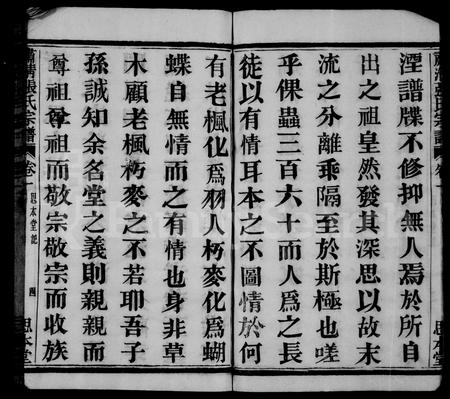 湮譜牒不修抑無人焉於所自
出之祖皇然發其深思以故末
流之分離乖隔至於斯極也嗟
乎倮蟲三百六十而人爲之長
徒以有情耳本之不圖情於何
有老楓化爲羽人朽麥化爲蝴
蝶自無情而之有情也身非草
木顧老楓朽麥之不若耶吾子
孫誠知余名堂之義則親親而
尊祖尊祖而敬宗敬宗而收族
蕭清張氏宗譜 卷一 思本堂記 四 思本堂